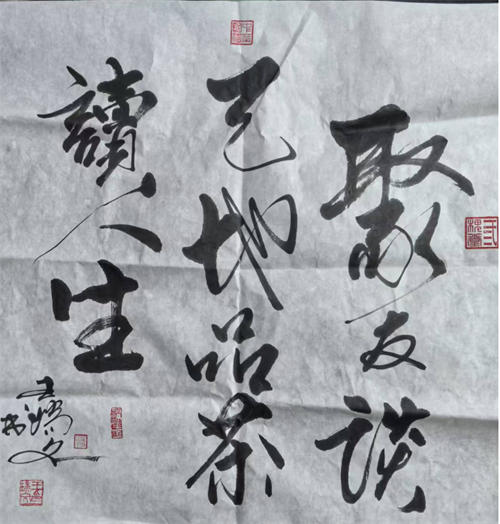 聚友談
天地品茶
讀人生